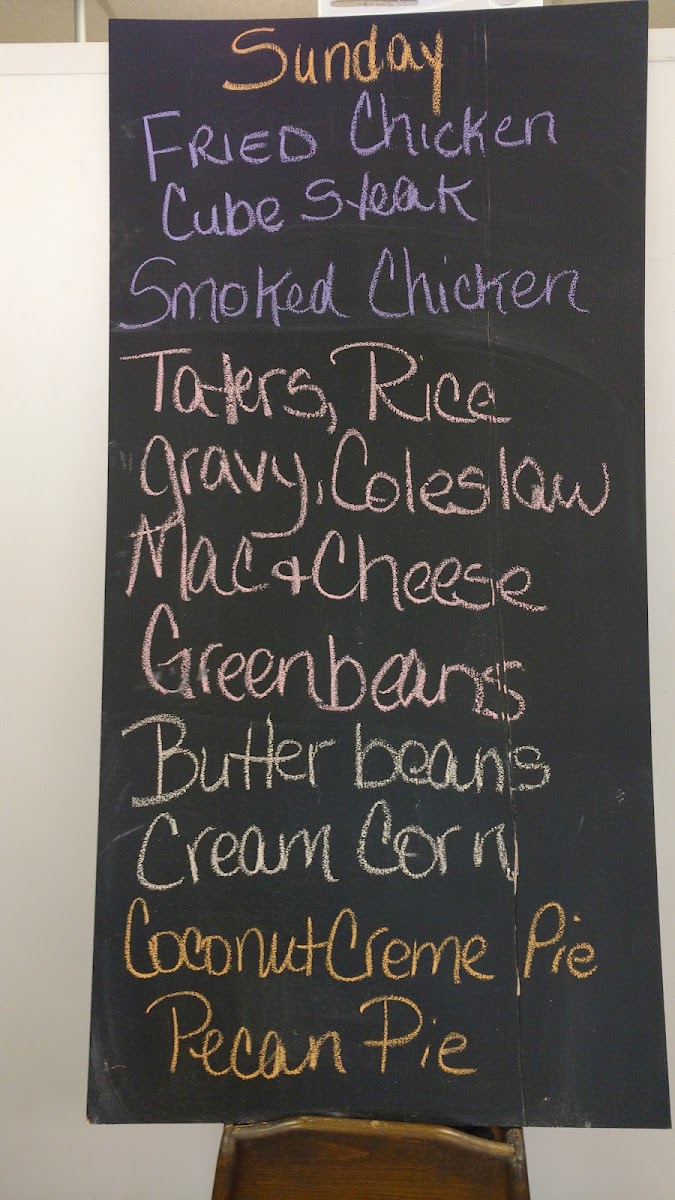 Sunday
FRIED Chicken
Cube Steak
Smoked Chicken
Taters, Rice
gravy, Coleslaw
Mac & Cheese
Greenbeans
Butter beans
Cream Corn
Coconut Creme Pie
Pecan Pie